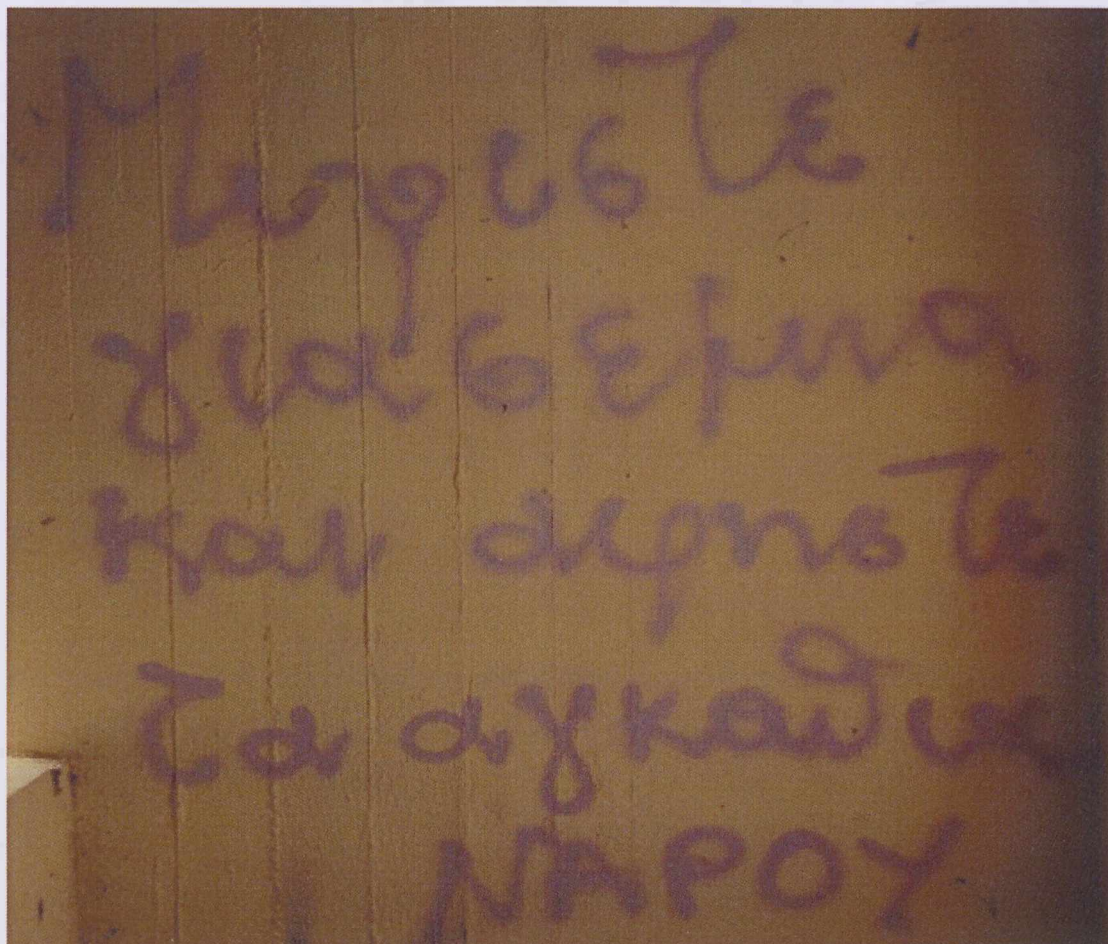 Μυριστε
γιασεμια
και αφηστε
τα αγκαθια
ΝΑΡΟΥ